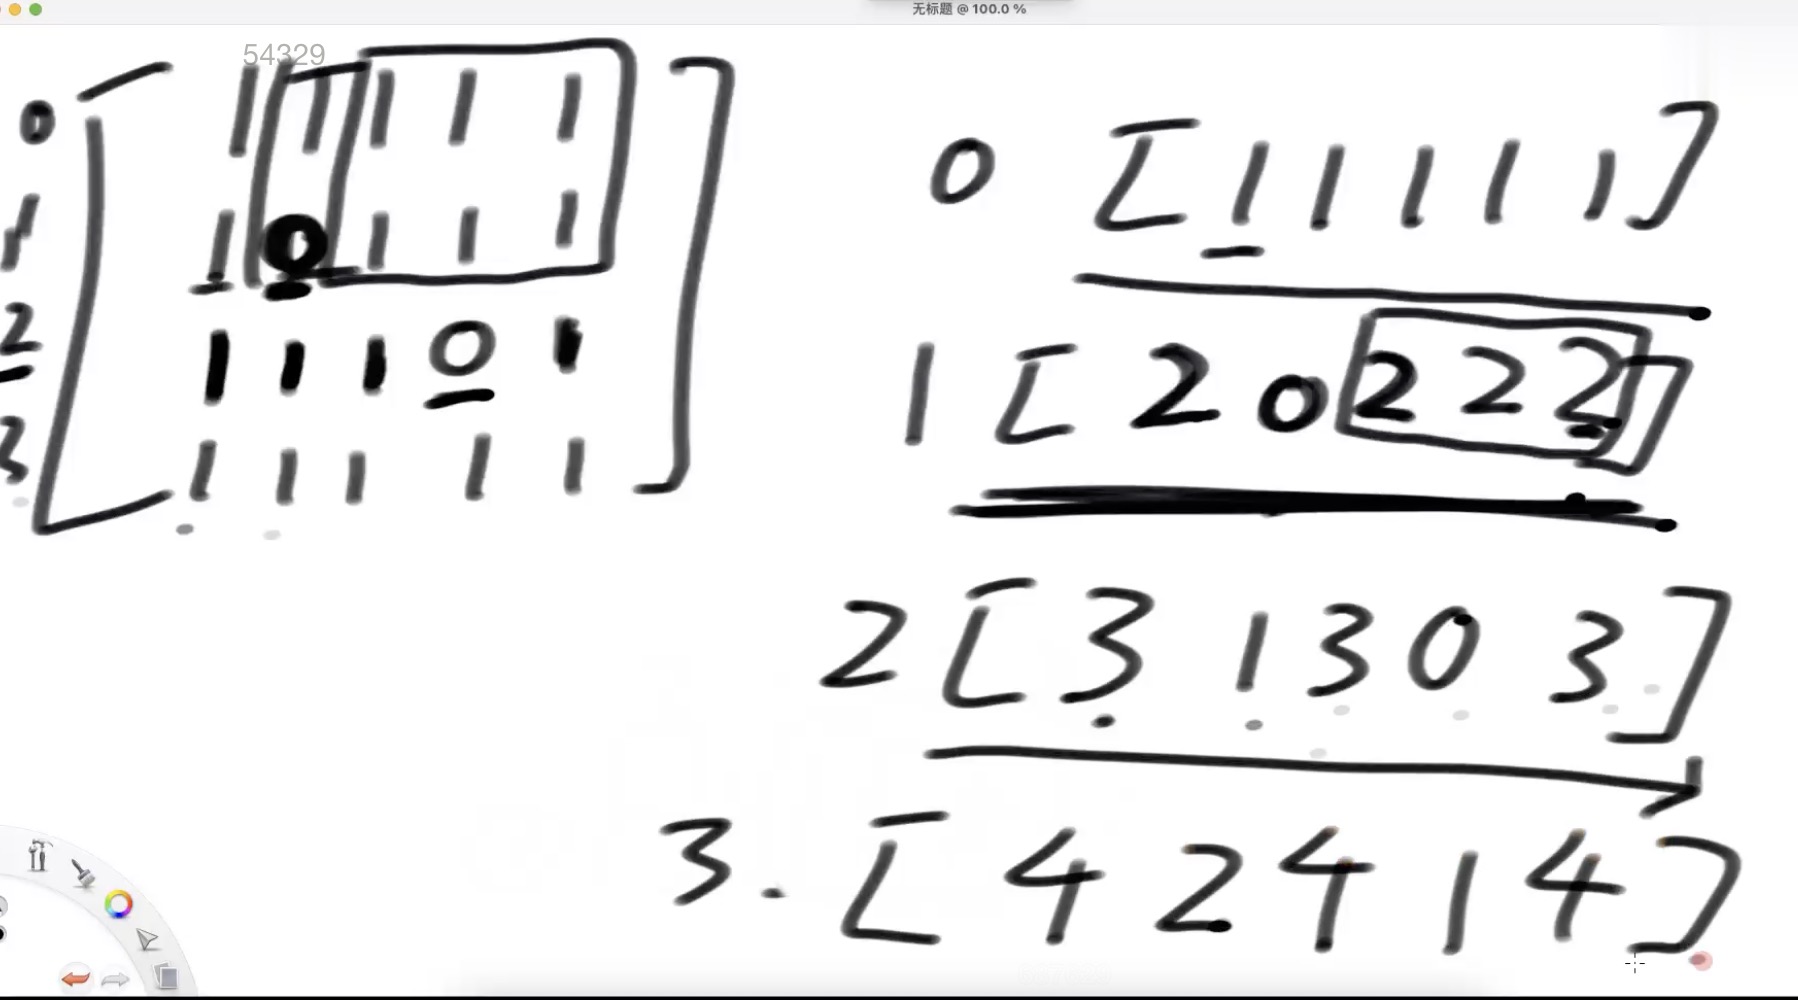 无标题 @ 100.0 %
54329
0 [ 1 1 1 1 1 ]
1 [ 1 0 1 1 1 ]
2 [ 1 1 1 0 1 ]
3 [ 1 1 1 1 1 ]
0 [ 1 1 1 1 1 ]
1 [ 2 0 2 2 2 ]
2 [ 3 1 3 0 3 ]
3. [ 4 2 4 1 4 ]